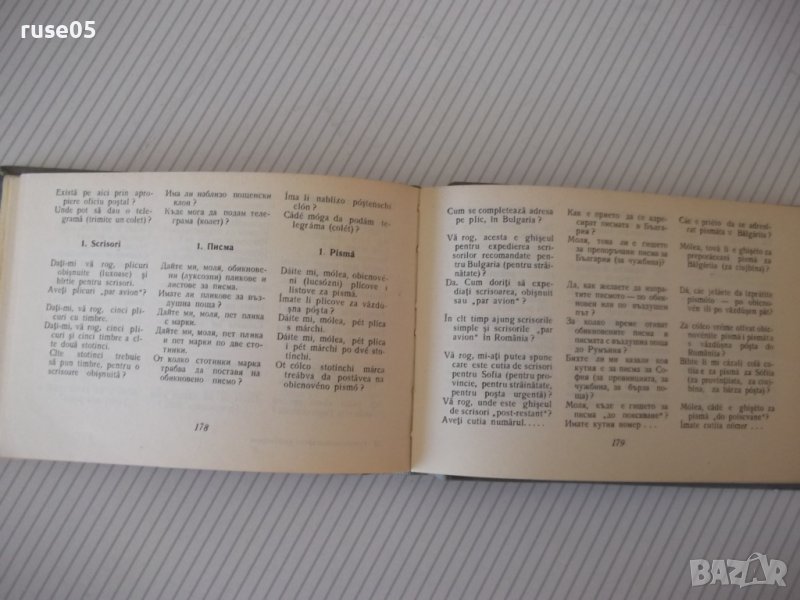 ruse05
Există pe aici prin apro-
piere oficiu poștal ?
Unde pot să dau o tele-
gramă (trimite un colet) ?
1. Scrisori
Dați-mi vă rog, plicuri
obișnuite (luxoase) și
hîrtie pentru scrisori.
Aveți plicuri „par avion"?
Dați-mi, vă rog, cinci pli-
curi cu timbre.
Dați-mi, vă rog, cinci pli-
curi și cinci timbre a cîte
două stotinci.
Cîte stotinci trebuie
să pun timbre, pentru o
scrisoare obișnuită ?
Има ли наблизо пощенски
клон ?
Къде мога да подам теле-
грама (колет) ?
1. Писма
Дайте ми, моля, обикнове-
ни (луксозни) пликове и
листове за писма.
Имате ли пликове за въз-
душна поща ?
Дайте ми, моля, пет плика
с марки.
Дайте ми, моля, пет плика
и пет марки по две сто-
тинки.
От колко стотинки марка
трябва да поставя на
обикновено писмо ?
Íma li nablízo póștenschi
clón ?
Cădé móga da podám te-
legráma (colét) ?
1. Pismá
Dáite mi, mólea, obicnové-
ni (lucsózni) plícove i
lístove za pismá.
Imáte li plícove za văzdú-
șna póșta ?
Dáite mi, mólea, pét plíca
s márchi.
Dáite mi, mólea, pét plíca
i pét márchi po dvé sto-
tínchi.
Ot cólco stotínchi márca
treábva da postávea na
obicnovéno pismó ?
178
Cum se completează adresa
pe plic, în Bulgaria ?
Vă rog, acesta e ghișeul
pentru expedierea scri-
sorilor recomandate pen-
tru Bulgaria (pentru străi-
nătate) ?
Da. Cum doriți să expe-
diați scrisoarea, obișnuit
sau „par avion" ?
În cît timp ajung scrisorile
simple și scrisorile „par
avion" în România ?
Vă rog, mi-ați putea spune
care este cutia de scrisori
pentru Sofia (pentru pro-
vincie, pentru străinătate,
pentru poșta urgentă) ?
Vă rog, unde este ghișeul
de scrisori „post-restant" ?
Aveți cutia numărul.....
Как е прието да се адре-
сират писмата в Бълга-
рия ?
Моля, това ли е гишето
за препоръчани писма за
България (за чужбина) ?
Да, как желаете да изпра-
тите писмото — по обик-
новен или по въздушен
път ?
За колко време отиват
обикновените писма и
писмата с въздушна поща
до Румъния ?
Бихте ли ми казали коя
кутия е за писма за Со-
фия (за провинцията, за
чужбина, за бърза по-
ща) ?
Моля, къде е гишето за
писма „до поискване" ?
Имате кутия номер ...
Cák e priéto da se adresí-
rat pismáta v Bălgária ?
Mólea, tová li e ghișéto za
preporăcani pismá za
Bălgária (za ciujbína) ?
Dá, các jeláete da izprátite
pismóto — po obicnovén
ilí po văzdúșen păt ?
Za cólco vréme otívat obic-
novénite pismá i pismáta
s văzdúșna póșta do
Romănia ?
Bíhte li mi cazáli coiá cu-
tíia e za pismá za Sófia
(za provínțiiata, za ciuj-
bína, za bărza póșta) ?
Mólea, cădé e ghișéto za
pismá „do poíscvane" ?
Imáte cutíia nómer ...
179
BAZAR